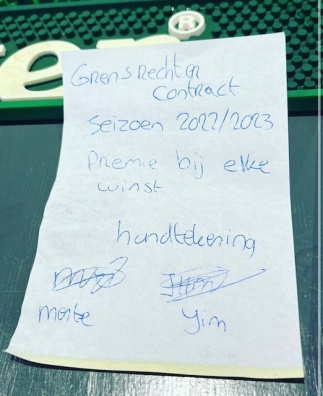 en®
Grensrechter
contract
Seizoen 2022/2023
Premie bij elke
winst
handtekening
Yim